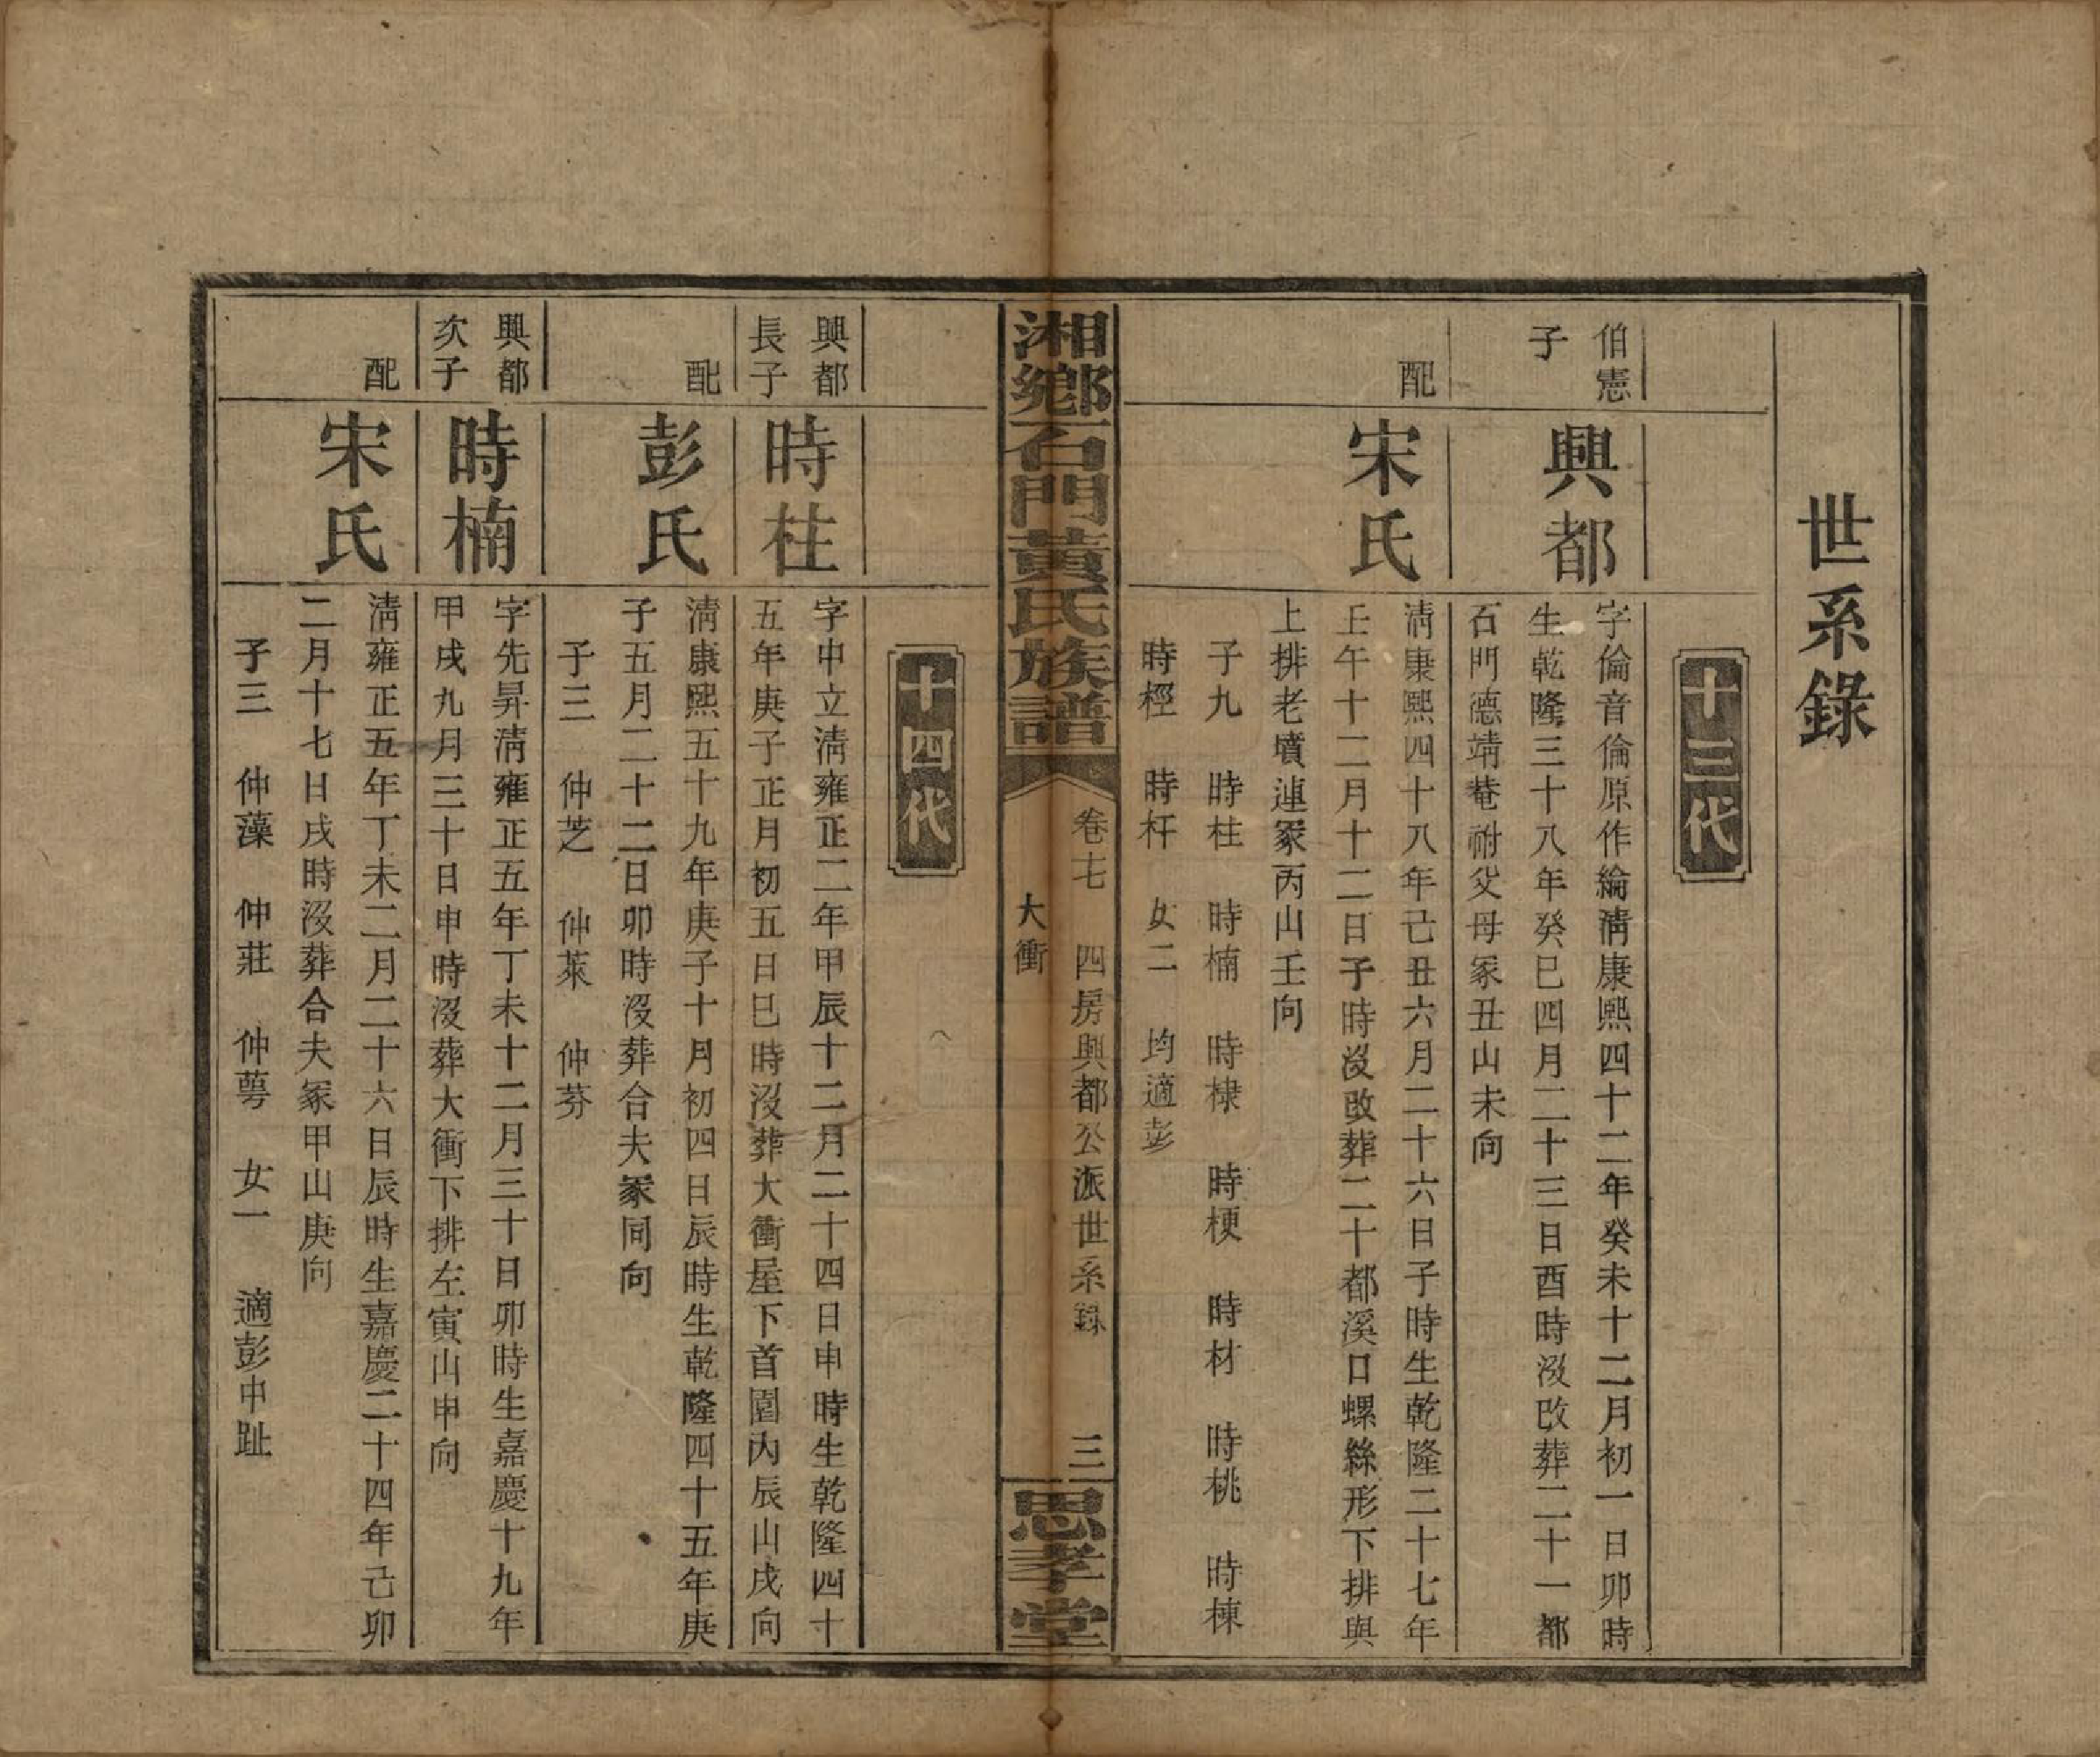 世系錄
十三代
伯憲
子
興都
字倫音倫原作綸淸康熙四十二年癸未十二月初一日卯時
生乾隆三十八年癸巳四月二十三日酉時沒改葬二十一都
石門德靖菴祔父母冢丑山未向
配
宋氏
淸康熙四十八年己丑六月二十六日子時生乾隆二十七年
壬午十二月十二日子時沒改葬二十都溪口螺絲形下排與
上排老墳連冢丙山壬向
子九 時柱 時楠 時棣 時梗 時材 時桃 時棟
時樫 時杆 女二 均適彭
湘鄉石門黃氏族譜
卷七 四房興都公派世系錄 三
大衝
思孝堂
十四代
興都
長子
時柱
字中立淸雍正二年甲辰十二月二十四日申時生乾隆四十
五年庚子正月初五日巳時沒葬大衝屋下首園內辰山戌向
配
彭氏
淸康熙五十九年庚子十月初四日辰時生乾隆四十五年庚
子五月二十二日卯時沒葬合夫冢同向
子三 仲芝 仲萊 仲芬
興都
次子
時楠
字先昇淸雍正五年丁未十二月三十日卯時生嘉慶十九年
甲戌九月三十日申時沒葬大衝下排左寅山申向
配
宋氏
淸雍正五年丁未二月二十六日辰時生嘉慶二十四年己卯
二月十七日戌時沒葬合夫冢甲山庚向
子三 仲藻 仲莊 仲蕚 女一 適彭中趾